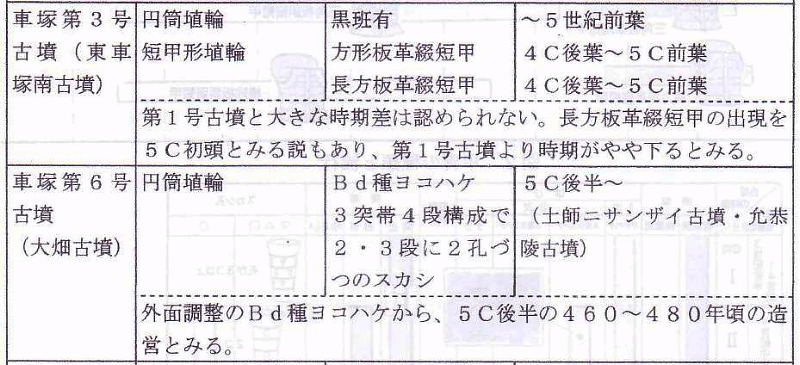 車塚第3号 円筒埴輪 黒班有 ～5世紀前葉
古墳(東車 短甲形埴輪 方形板革綴短甲 4C後葉～5C前葉
塚南古墳) 長方板革綴短甲 4C後葉～5C前葉
第1号古墳と大きな時期差は認められない。長方板革綴短甲の出現を
5C初頭とみる説もあり、第1号古墳より時期がやや下るとみる。
車塚第6号 円筒埴輪 Bd種ヨコハケ 5C後半～
古墳 3突帯4段構成で (土師ニサンザイ古墳・允恭
(大畑古墳) 2・3段に2孔づ 陵古墳)
つのスカシ
外面調整のBd種ヨコハケから、5C後半の460～480年頃の造
営とみる。